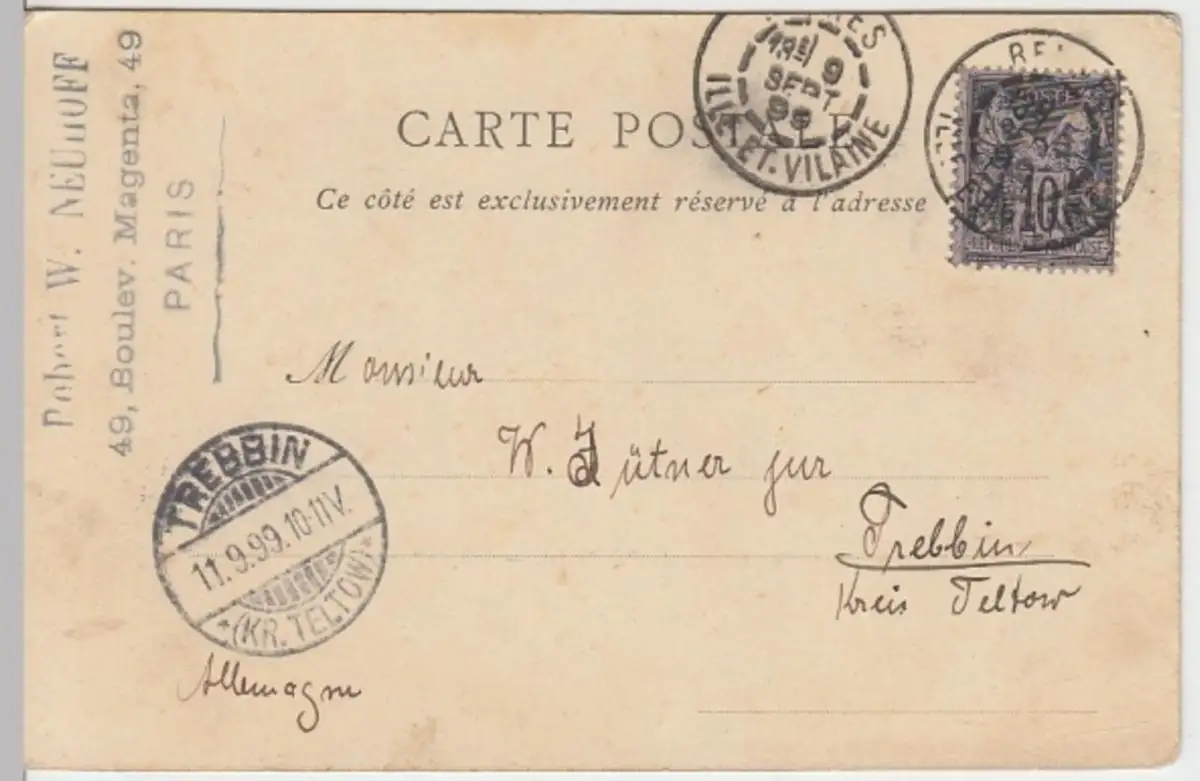 Robert W. NEUHOFF
49, Boulev. Magenta, 49
PARIS
CARTE POSTALE
Ce côté est exclusivement réservé à l'adresse
9
SEPT
ILLE-ET-VILAINE
10
Monsieur
W. Jütner jur
Trebbin
Kreis Teltow
TREBBIN
11.9.99.10-11V.
*(KR. TELTOW)*
Allemagne